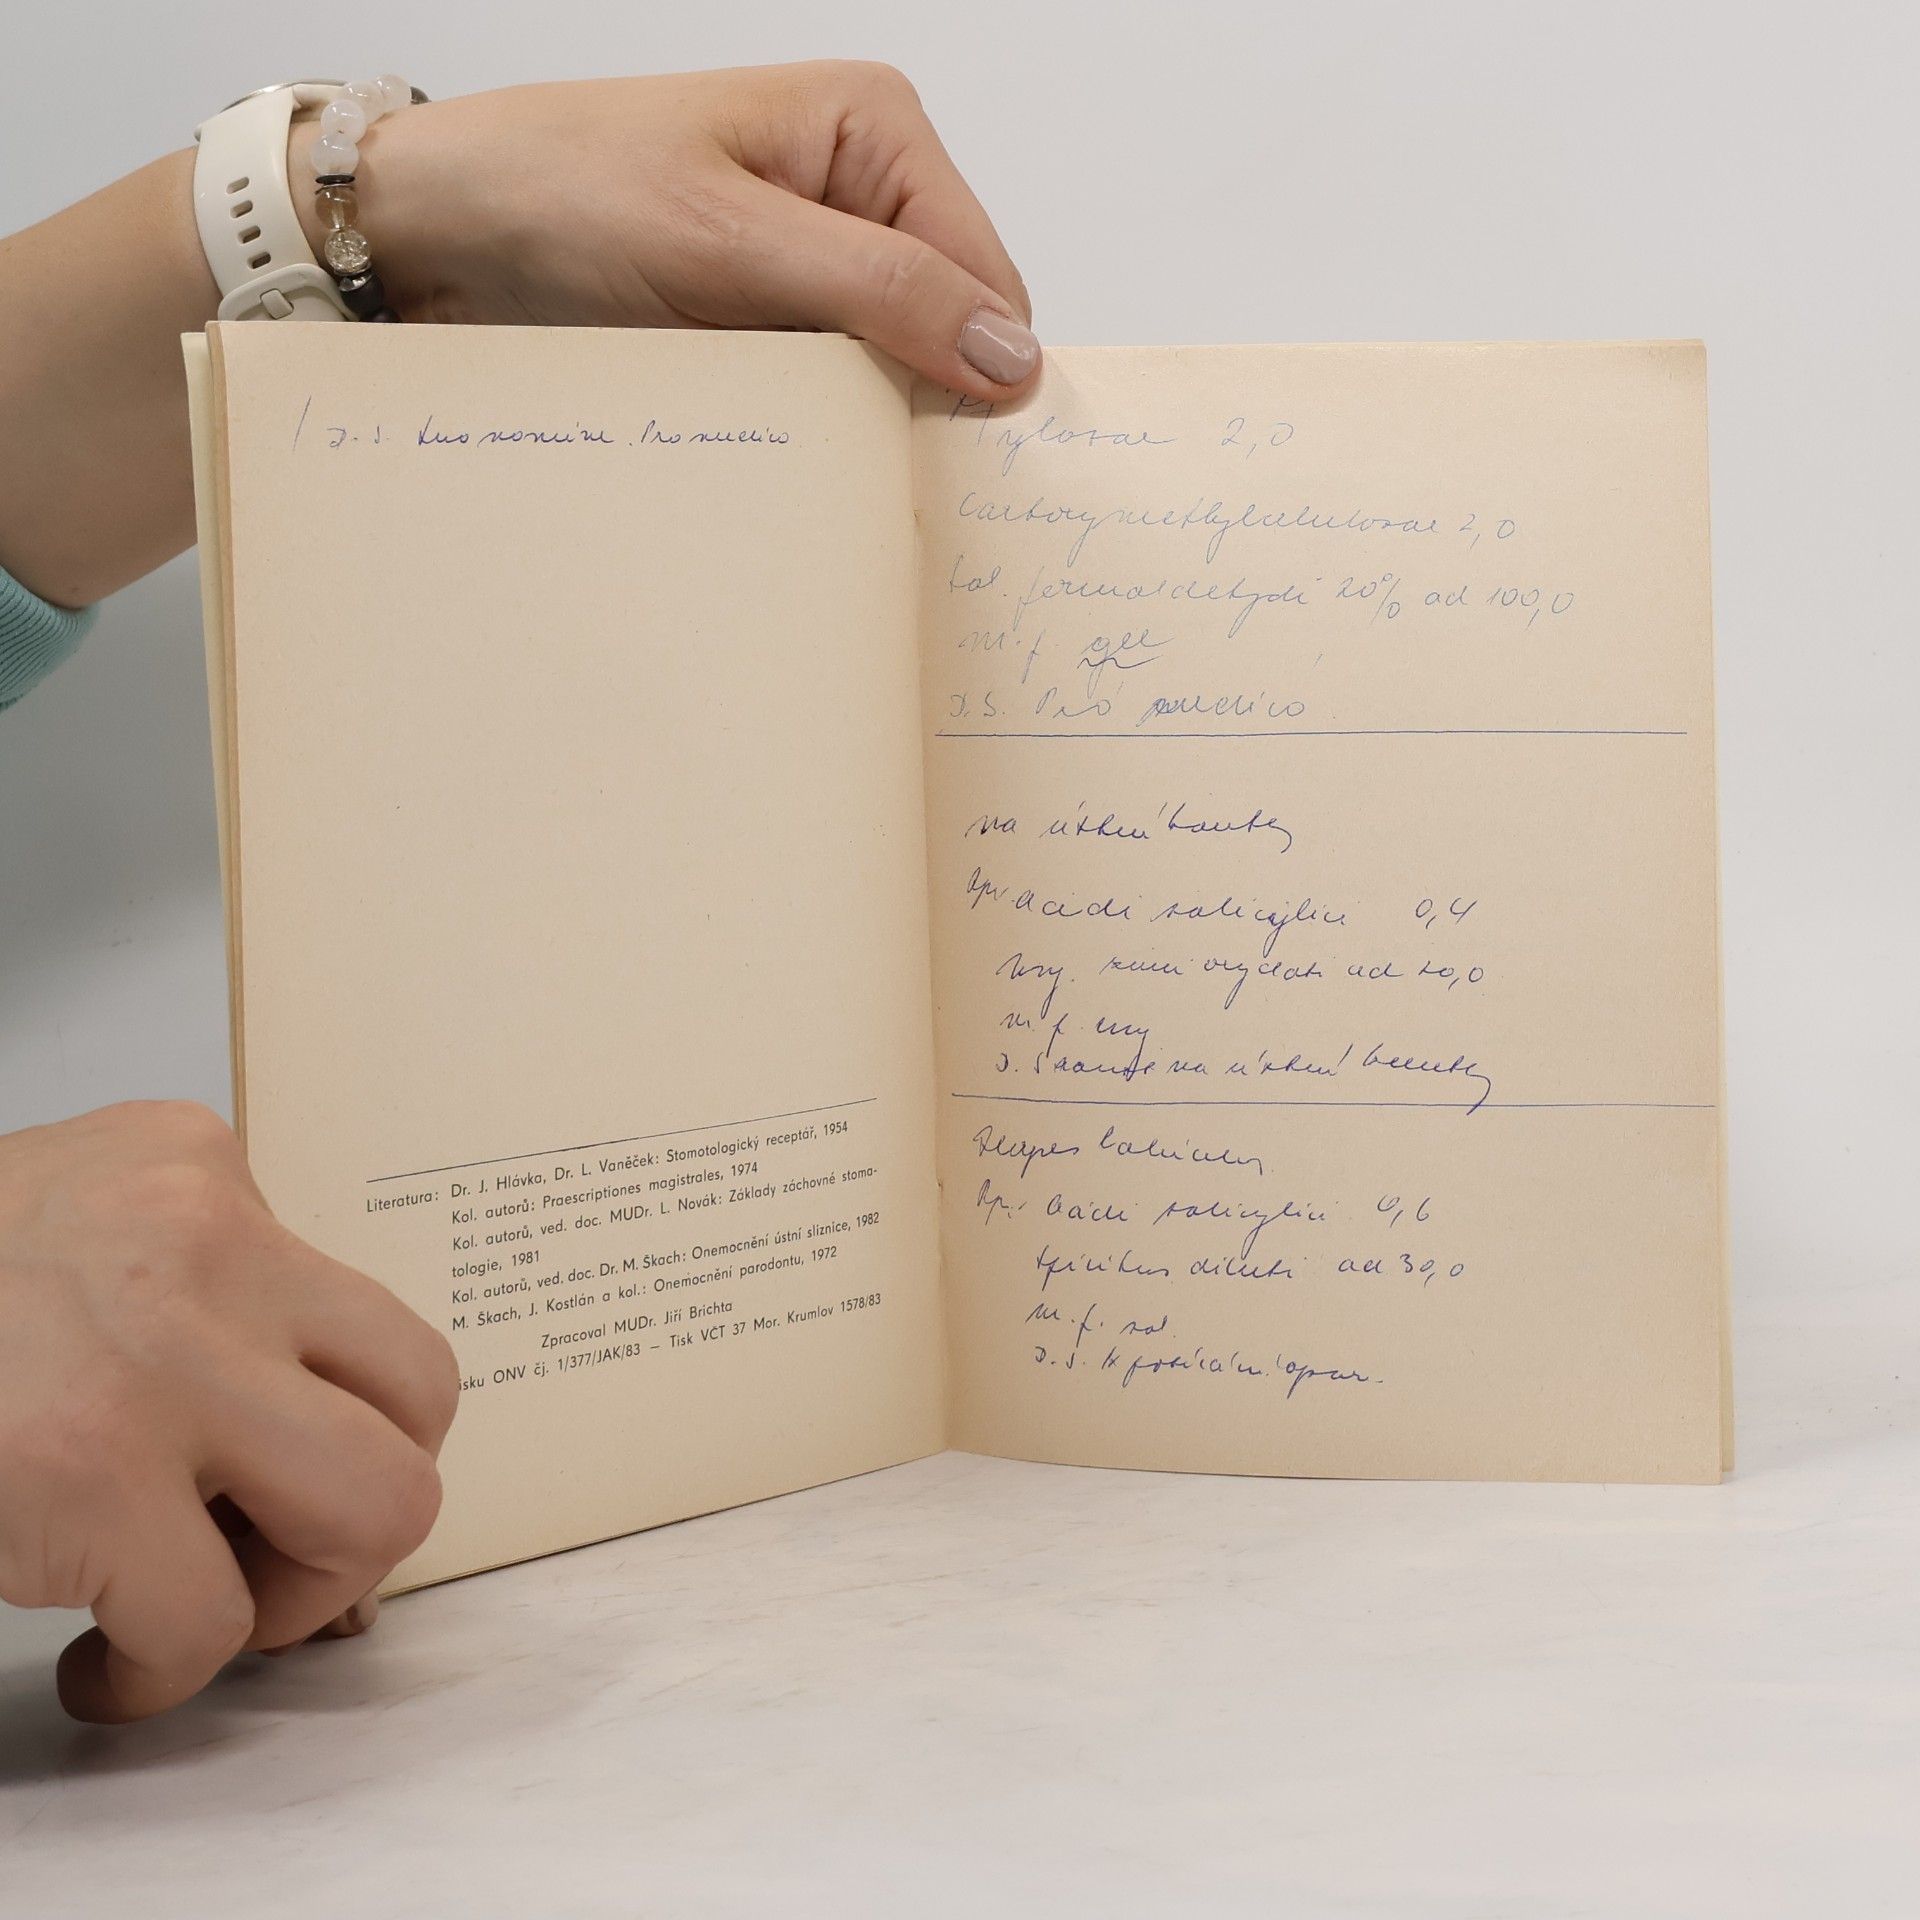 D. S. Suo nomine. Pro medico
Literatura: Dr. J. Hlávka, Dr. L. Vaněček: Stomotologický receptář, 1954
Kol. autorů: Praescriptiones magistrales, 1974
Kol. autorů, ved. doc. MUDr. L. Novák: Základy záchovné stoma-
tologie, 1981
Kol. autorů, ved. doc. Dr. M. Škach: Onemocnění ústní sliznice, 1982
M. Škach, J. Kostlán a kol.: Onemocnění parodontu, 1972
Zpracoval MUDr. Jiří Brichta
isku ONV čj. 1/377/JAK/83 — Tisk VČT 37 Mor. Krumlov 1578/83
2,0
Carboxymethylcelulosae 2,0
Sol. formaldehydi 20% ad 100,0
m. f. gel
D. S. Pro medico
na ústní koutky
Rp. Acidi salicylici 0,4
Ung. zinci oxydati ad 20,0
m. f. ung
D. S. na ústní koutky
Herpes labialis
Rp. Acidi salicylici 0,6
Spiritus diluti ad 30,0
m. f. sol.
D. S. K potírání